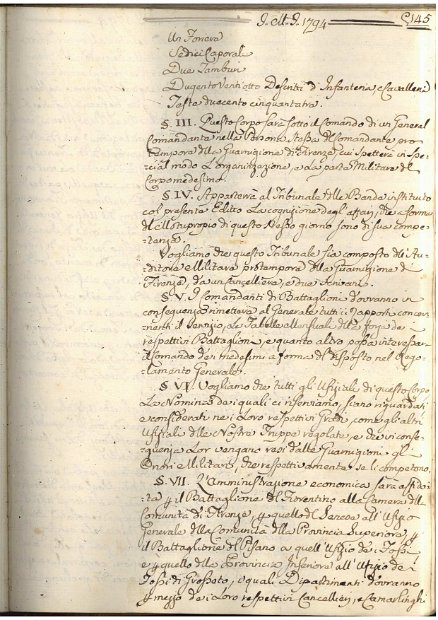 I. M. I. 1794 C 145
Un Foriere
Sedici Caporali
Due Tamburi
Dugento Ventotto Descritti d'Infanteria e Cavalleria
Teste duecento cinquantatre.
§. III. Questo Corpo sarà sotto il Comando di un General
Comandante nella Persona stessa del Comandante pro
tempora della Guarnigione di Firenze, a cui spetterà in spe-
cial modo L'organizzazione, e La parte Militare del
Corpo medesimo.
§. IV. Apparterrà al Tribunale delle Bande instituito
col presente Editto La cognizione degli affari, che a forma
del Motuproprio di questo stesso giorno sono di sua compe-
tenza.
Vogliamo che questo Tribunale sia composto dell'Au-
ditore Militare protempora della Guarnigione di
Firenze, da un Cancelliere, e due Scrivani.
§. V. I Comandanti di Battaglioni dovranno in
conseguenza rimettere al Generale tutti i rapporti concer-
nenti il servizio, Le Tabelle mensuali delle forze de
respettivi Battaglioni, e quanto altro possa interessare
il Comando de' medesimi a forma del disposto nel Rego-
lamento Generale.
§. VI. Vogliamo che tutti gli Ufiziali di questo Corpo
La Nomina dei quali ci riserviamo, siano riguardati
e considerati nei Loro respettivi Gradi, come gli altri
Ufiziali delle Nostre Truppe regolate, e che in conse-
guenza Lor vengano resi dalle Guarnigioni gli
Onori Militari, che respettivamente se li competono.
§. VII. L'Amministrazione economica sarà affida-
ta p. il Battaglione del Fiorentino alla Camera della
Comunità di Firenze, p. quello del Senese all'Ufizio
Generale delle Comunità della Provincia Superiore, p.
il Battaglione del Pisano a quell'Ufizio dei Fossi
e p. quello della Provincia Inferiore all'Ufizio dei
Fossi di Grosseto, i quali Dipartimenti dovranno
p. mezzo dei Loro respettivi Cancellieri, e Camarlinghi